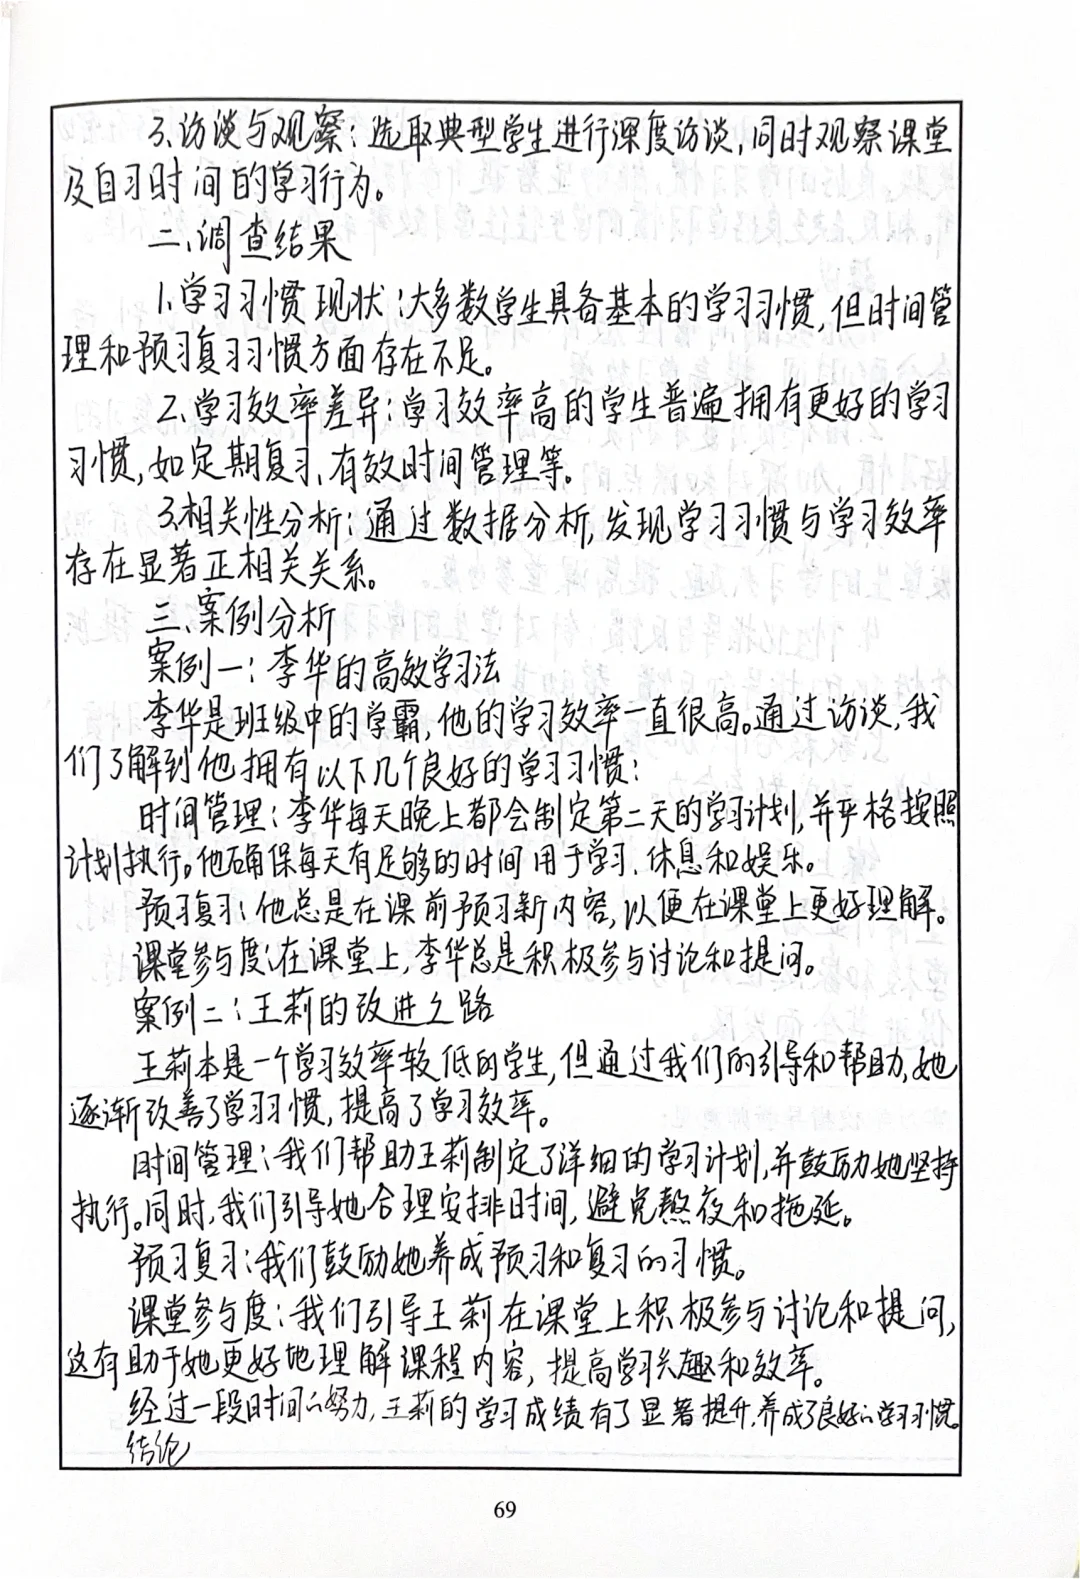 3.访谈与观察：选取典型学生进行深度访谈，同时观察课堂
及自习时间的学习行为。
二、调查结果
1.学习习惯现状：大多数学生具备基本的学习习惯，但时间管
理和预习复习习惯方面存在不足。
2.学习效率差异：学习效率高的学生普遍拥有更好的学习
习惯，如定期复习、有效时间管理等。
3.相关性分析：通过数据分析，发现学习习惯与学习效率
存在显著正相关关系。
三、案例分析
案例一：李华的高效学习法
李华是班级中的学霸，他的学习效率一直很高。通过访谈，我
们了解到他拥有以下几个良好的学习习惯：
时间管理：李华每天晚上都会制定第二天的学习计划，并严格按照
计划执行。他确保每天有足够的时间用于学习、休息和娱乐。
预习复习：他总是在课前预习新内容，以便在课堂上更好理解。
课堂参与度：在课堂上，李华总是积极参与讨论和提问。
案例二：王莉的改进之路
王莉本是一个学习效率较低的学生，但通过我们的引导和帮助，她
逐渐改善了学习习惯，提高了学习效率。
时间管理：我们帮助王莉制定了详细的学习计划，并鼓励她坚持
执行。同时，我们引导她合理安排时间，避免熬夜和拖延。
预习复习：我们鼓励她养成预习和复习的习惯。
课堂参与度：我们引导王莉在课堂上积极参与讨论和提问，
这有助于她更好地理解课程内容，提高学习兴趣和效率。
经过一段时间的努力，王莉的学习成绩有了显著提升，养成了良好的学习习惯。
结论
69